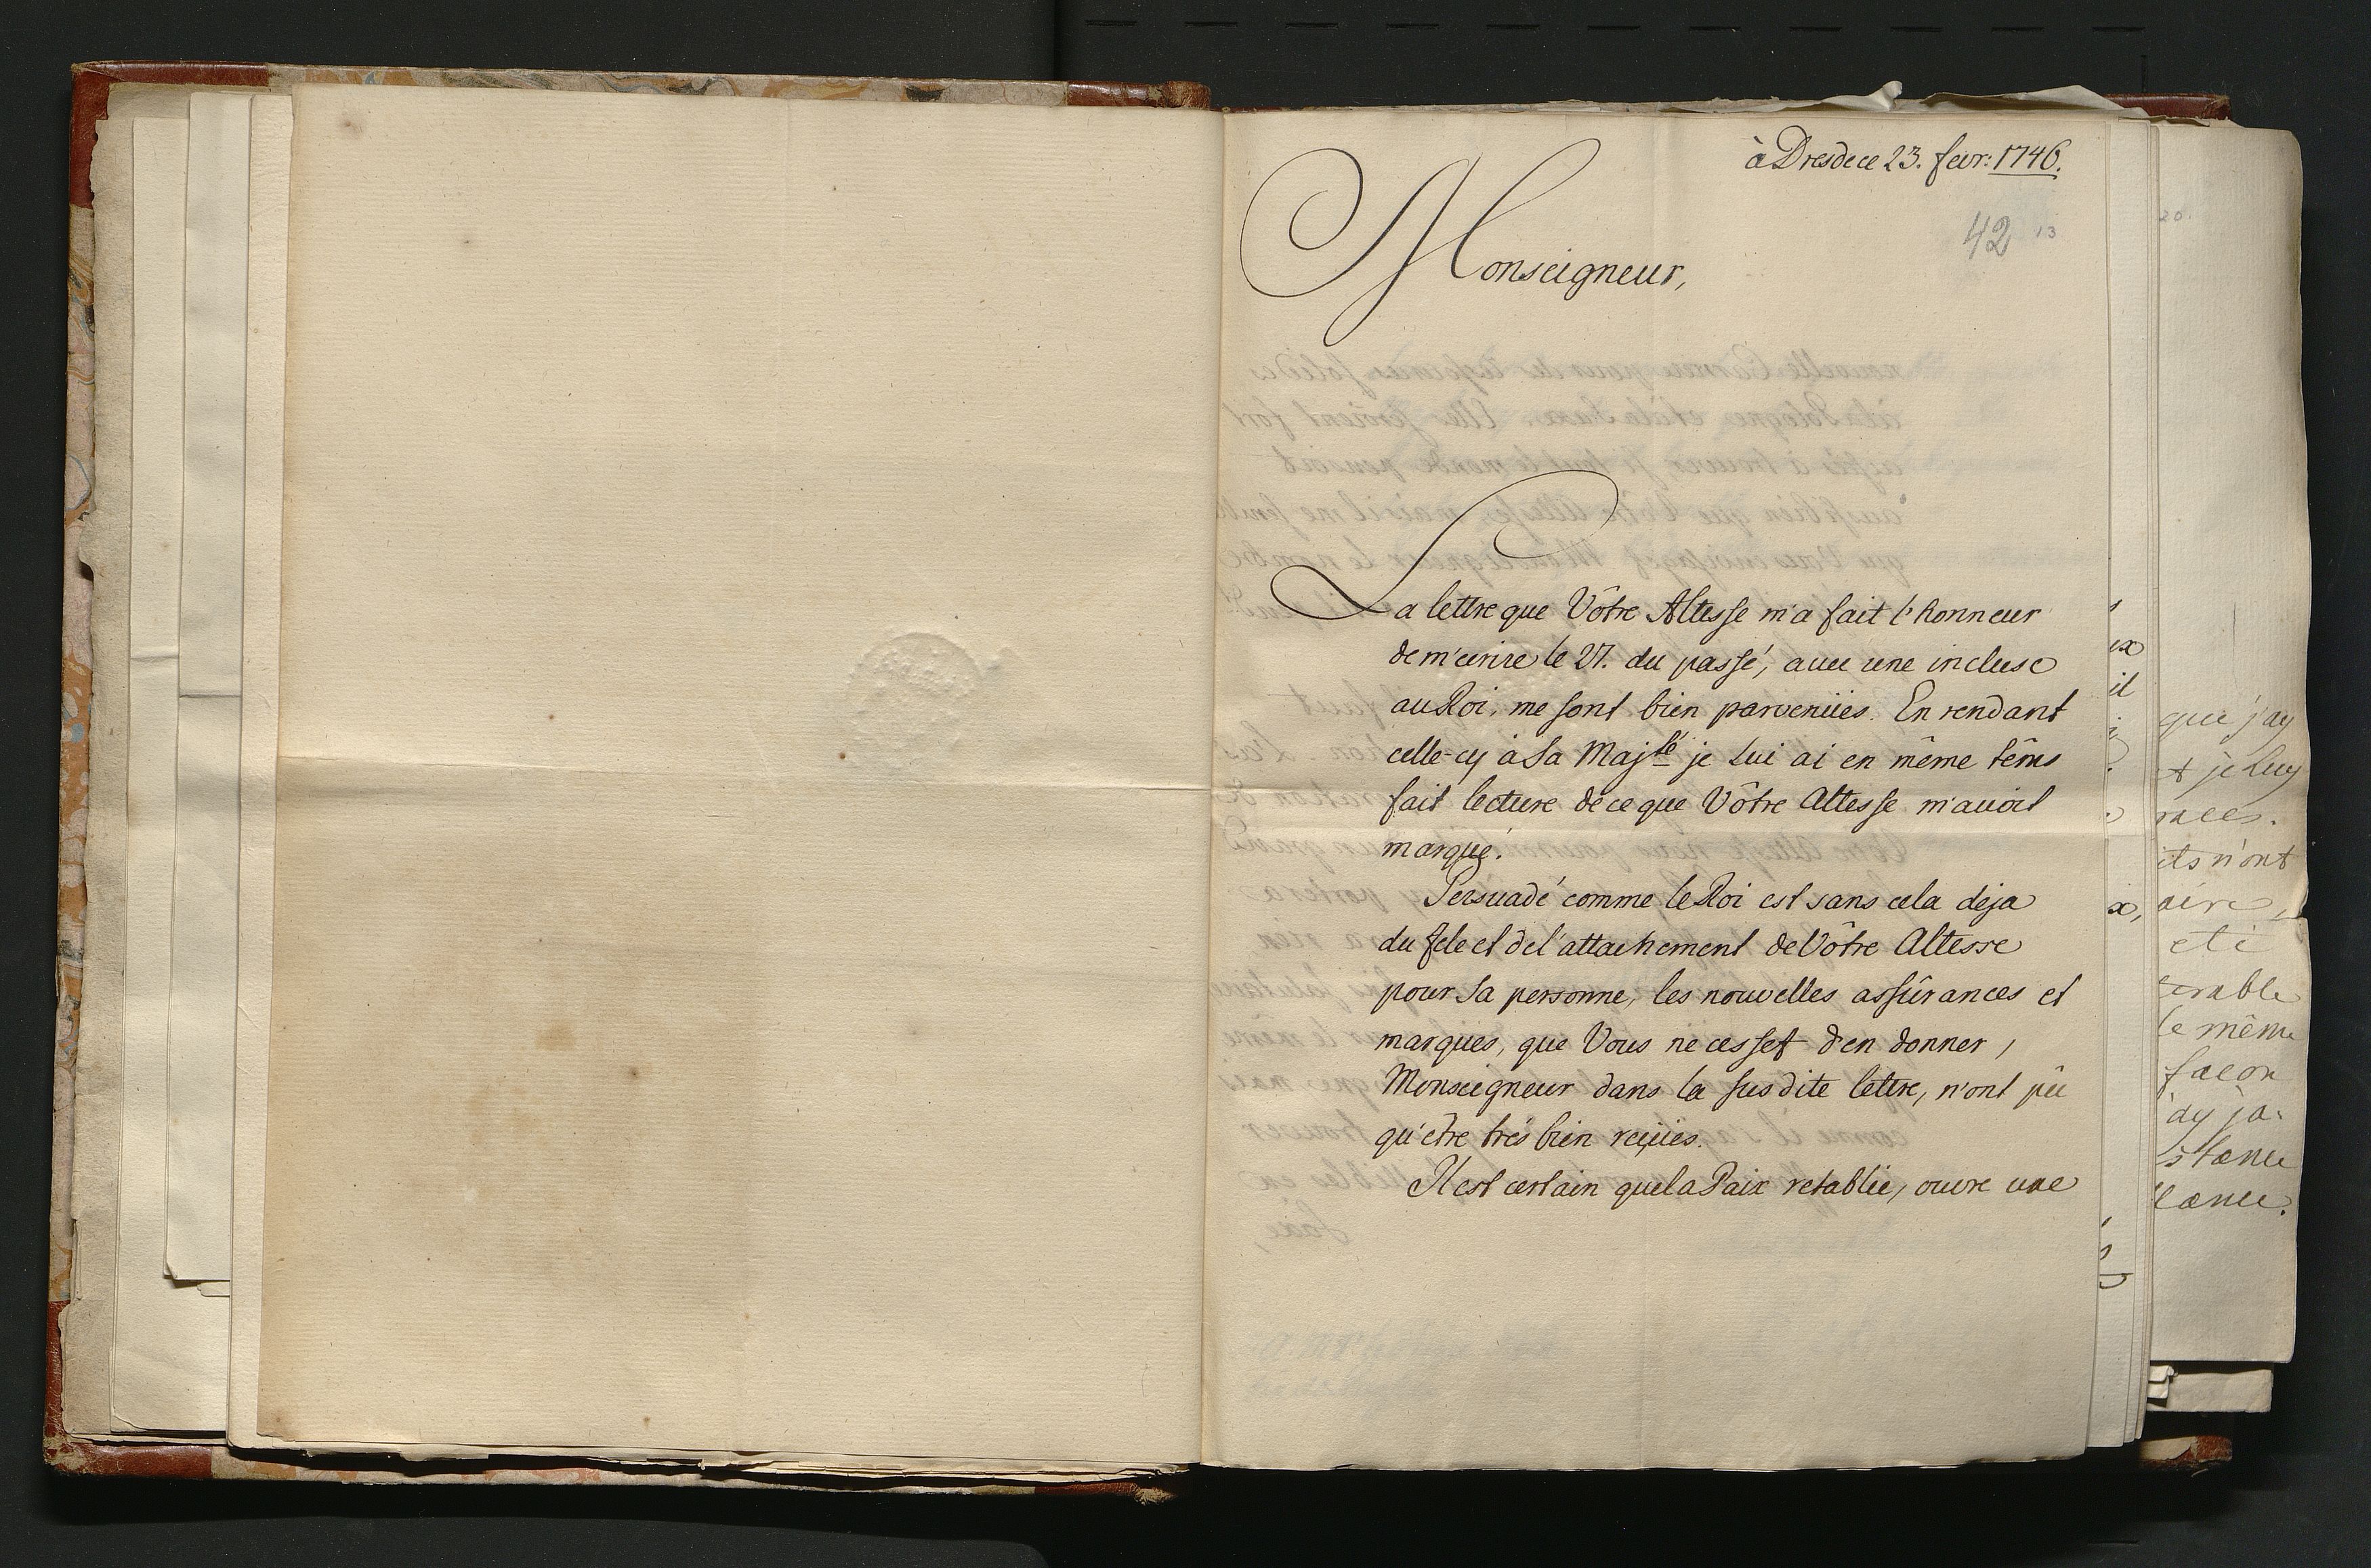 à Dresde ce 23. fevr: 1746.
42 13
Monseigneur,
La lettre que Vôtre Altesse m'a fait l'honneur
de m'ecrire le 27. du passé, avec une incluse
au Roi, me sont bien parvenües. En rendant
celle-cy à Sa Maj.té je Lui ai en même têms
fait lecture de ce que Vôtre Altesse m'avoit
marqué.
Persuadé comme le Roi est sans cela deja
du zele et de l'attachement de Vôtre Altesse
pour Sa personne, les nouvelles assûrances et
marques, que Vous ne cessez d'en donner,
Monseigneur dans la susdite lettre, n'ont pû
qu'etre trés bien reçües.
Il est certain que la Paix retablie, ouvre une
20.
il
x,
que j'ay
et je Luy
ils n'ont
le même
façon